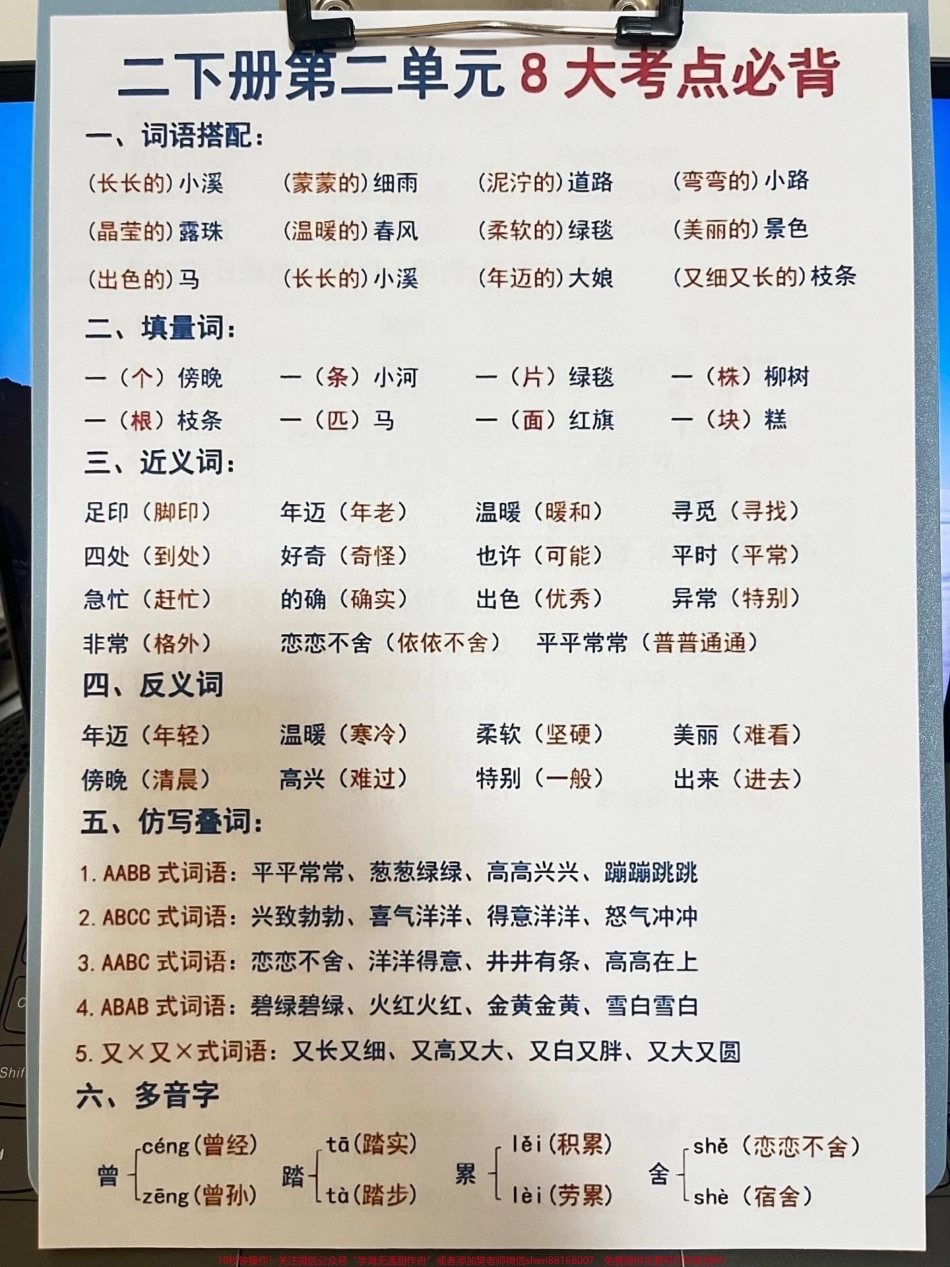 二下册第二单元8大考点必背
一、词语搭配：
(长长的)小溪 (蒙蒙的)细雨 (泥泞的)道路 (弯弯的)小路
(晶莹的)露珠 (温暖的)春风 (柔软的)绿毯 (美丽的)景色
(出色的)马 (长长的)小溪 (年迈的)大娘 (又细又长的)枝条
二、填量词：
一（个）傍晚 一（条）小河 一（片）绿毯 一（株）柳树
一（根）枝条 一（匹）马 一（面）红旗 一（块）糕
三、近义词：
足印（脚印） 年迈（年老） 温暖（暖和） 寻觅（寻找）
四处（到处） 好奇（奇怪） 也许（可能） 平时（平常）
急忙（赶忙） 的确（确实） 出色（优秀） 异常（特别）
非常（格外） 恋恋不舍（依依不舍） 平平常常（普普通通）
四、反义词
年迈（年轻） 温暖（寒冷） 柔软（坚硬） 美丽（难看）
傍晚（清晨） 高兴（难过） 特别（一般） 出来（进去）
五、仿写叠词：
1.AABB式词语：平平常常、葱葱绿绿、高高兴兴、蹦蹦跳跳
2.ABCC式词语：兴致勃勃、喜气洋洋、得意洋洋、怒气冲冲
3.AABC式词语：恋恋不舍、洋洋得意、井井有条、高高在上
4.ABAB式词语：碧绿碧绿、火红火红、金黄金黄、雪白雪白
5.又×又×式词语：又长又细、又高又大、又白又胖、又大又圆
六、多音字
céng(曾经) tā(踏实) lěi(积累) shě（恋恋不舍）
曾 踏 累 舍
zēng(曾孙) tà(踏步) lèi(劳累) shè（宿舍）